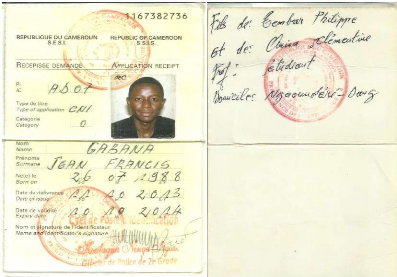 1167382736
REPUBLIQUE DU CAMEROUN
REPUBLIC OF CAMEROON
S.E.S.I.
S.S.I.S.
RECEPISSE DEMANDE
APPLICATION RECEIPT
IC
AD07
Type de titre
Type of application
CNI
Catégorie
Category
0
Nom
Name
GABANA
Prénoms
Surname
JEAN FRANCIS
Né(e) le
Born on
26 07 1988
Date de délivrance
Date of issue
2013
Date de validité
Expiry date
2014
Nom et signature de l'identificateur
Name and identificator's signature
Fils de: Tembar Philippe
et de: Clémentine
Prof: étudiant
Domicile: Ngaoundéré-Dang